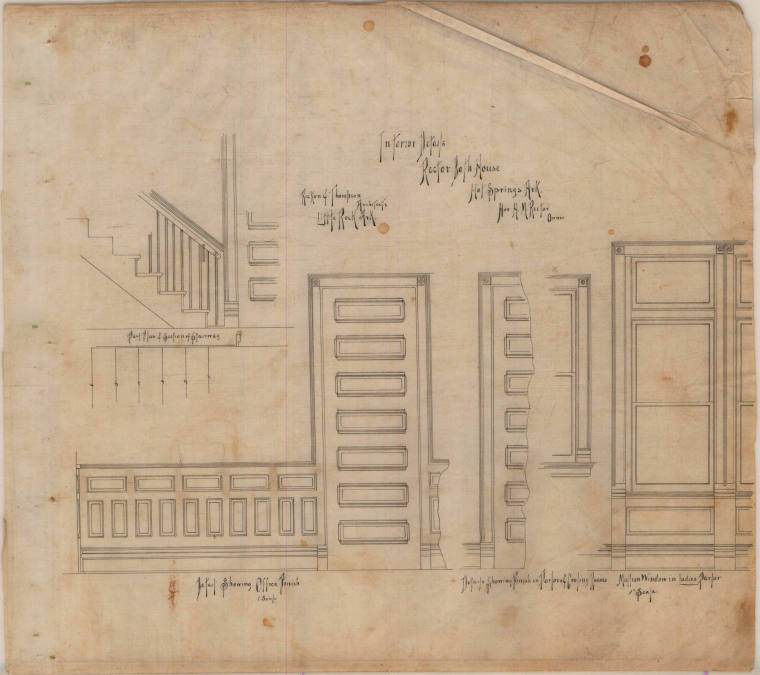 Interior Details
Rector Bath House
Hot Springs Ark
Hon H. M. Rector
Owner
& Thompson
Architects
Little Rock Ark
Part Plan & Section of Stairway
Detail Showing Office Finish
1" Scale
Details Showing Finish in Parlor & Cooling Rooms
Mullion Window in Ladies Parlor
1" Scale